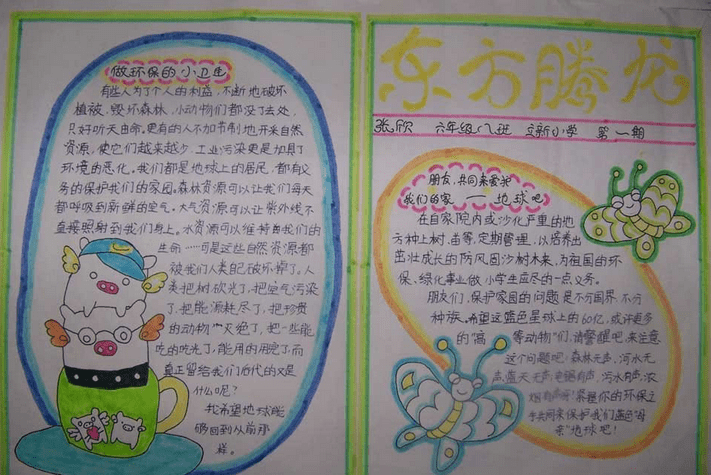 做环保的小卫生
有些人为了个人的利益,不断地破坏
植被,毁坏森林,小动物们都没了去处,
只好听天由命。更有的人不加节制地开来自然
资源,使它们越来越少,工业污染更是加具了
环境的恶化。我们都是地球上的居民,都有义
务的保护我们的家园。森林资源可以让我们每天
都呼吸到新鲜的空气。大气资源可以让紫外线不
直接照射到我们身上。水资源可以维持着我们的
生命……可是这些自然资源都
被我们人类自己破坏掉了。人
类把树砍光了,把空气污染
了,把能源耗尽了,把珍贵
的动物灭绝了,把一些能
吃的吃光了,能用的用完了,而
真正留给我们后代的又是
什么呢?
我希望地球能
够回到从前那
样。
东方腾龙
张欣 六年级八班 立新小学 第一期
朋友,共同来爱护
我们的家——地球吧
在自家院内或沙化严重的地
方种上树、苗等,定期管理,以培养出
茁壮成长的防风固沙树木来,为祖国的环
保、绿化事业做小学生应尽的一点义务。
朋友们,保护家园的问题是不分国界,不分
种族。希望这蓝色星球上的60亿,或许更多
的“高等动物”们,请警醒吧,来注意
这个问题吧:森林无声,河水无
声,蓝天无声,电锯有声,污水有声,浓
烟有声啊!累握你的环保之
手共同来保护我们蓝色“母
亲”地球吧!